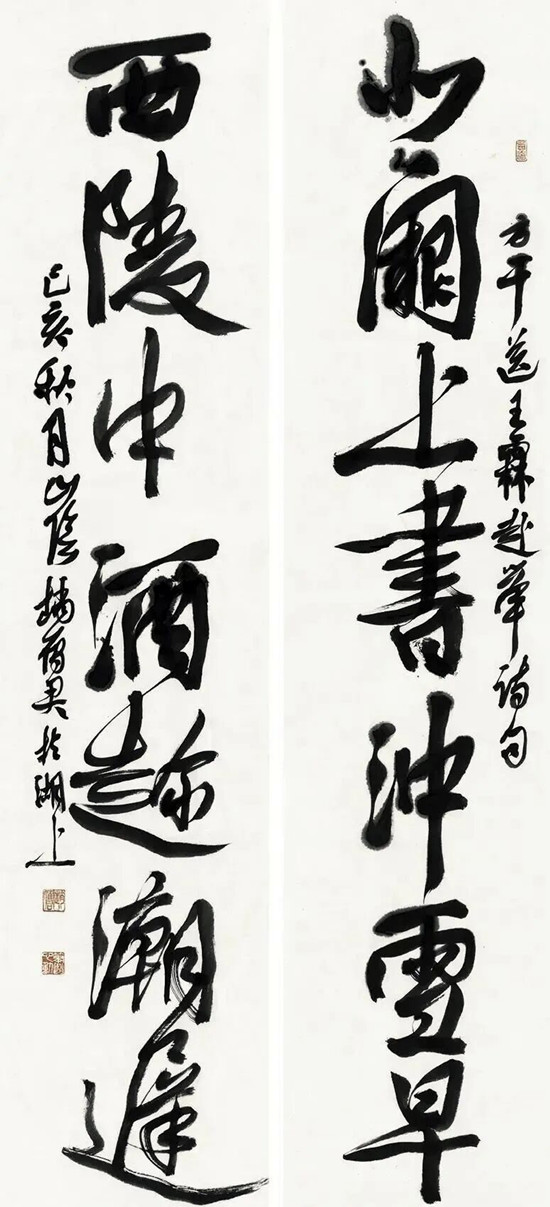 方干送王霖赴举诗句
北闕上書沖雪早
西陵中酒趂潮遲
己亥秋月山陰於湖上